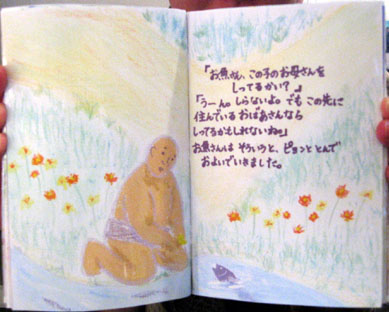 「お魚さん、この子のお母さんを
しってるかい？」
「うーん。しらないよ。でも この先に
住んでいる おばあさんなら
しってるかもしれないね。」
お魚さんは そういうと、ピョンと とんで
およいでいきました。